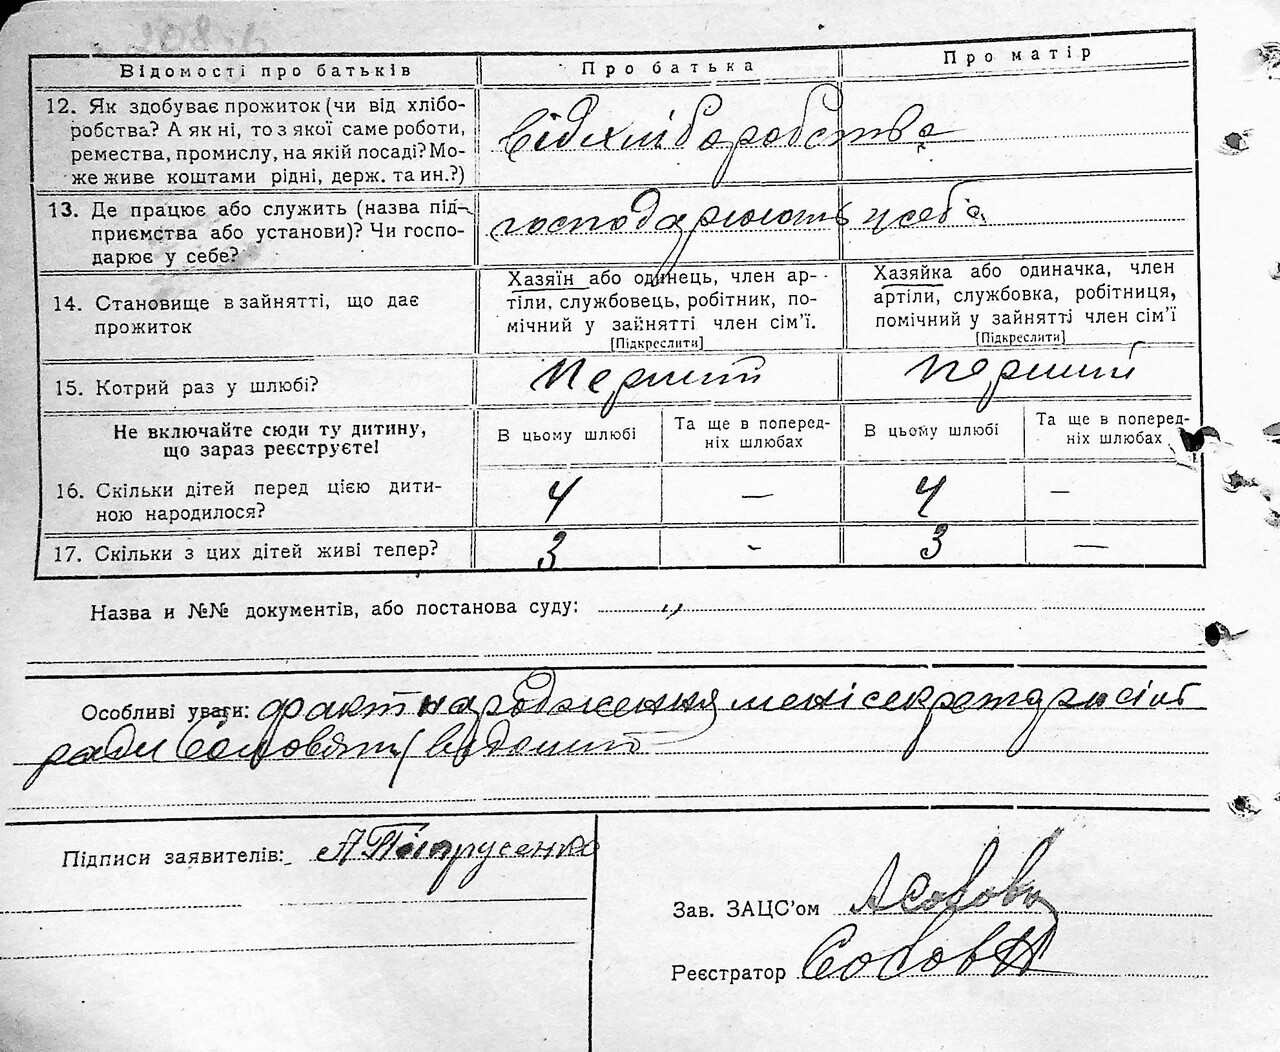 Відомості про батьків Про батька Про матір
12. Як здобуває прожиток (чи від хлібо-
робства? А як ні, то з якої саме роботи,
ремества, промислу, на якій посаді? Мо-
же живе коштами рідні, держ. та ин.?)
від хліборобства
13. Де працює або служить (назва під-
приємства або установи)? Чи госпо-
дарює у себе?
господарюють у себе
14. Становище в зайнятті, що дає
прожиток
Хазяїн або одинець, член ар-
тіли, службовець, робітник, по-
мічний у зайнятті член сім'ї.
[Підкреслити]
Хазяйка або одиначка, член
артіли, службовка, робітниця,
помічний у зайнятті член сім'ї
[Підкреслити]
15. Котрий раз у шлюбі? перший перший
Не включайте сюди ту дитину,
що зараз реєструєте!
В цьому шлюбі
Та ще в поперед-
ніх шлюбах
В цьому шлюбі
Та ще в поперед-
ніх шлюбах
16. Скільки дітей перед цією дити-
ною народилося?
4 — 4 —
17. Скільки з цих дітей живі тепер? 3 - 3 —
Назва и №№ документів, або постанова суду: "
Особливі уваги: факт народження мені секретарю сіль
ради відомий
Підписи заявителів: А
Зав. ЗАЦС'ом
Реєстратор